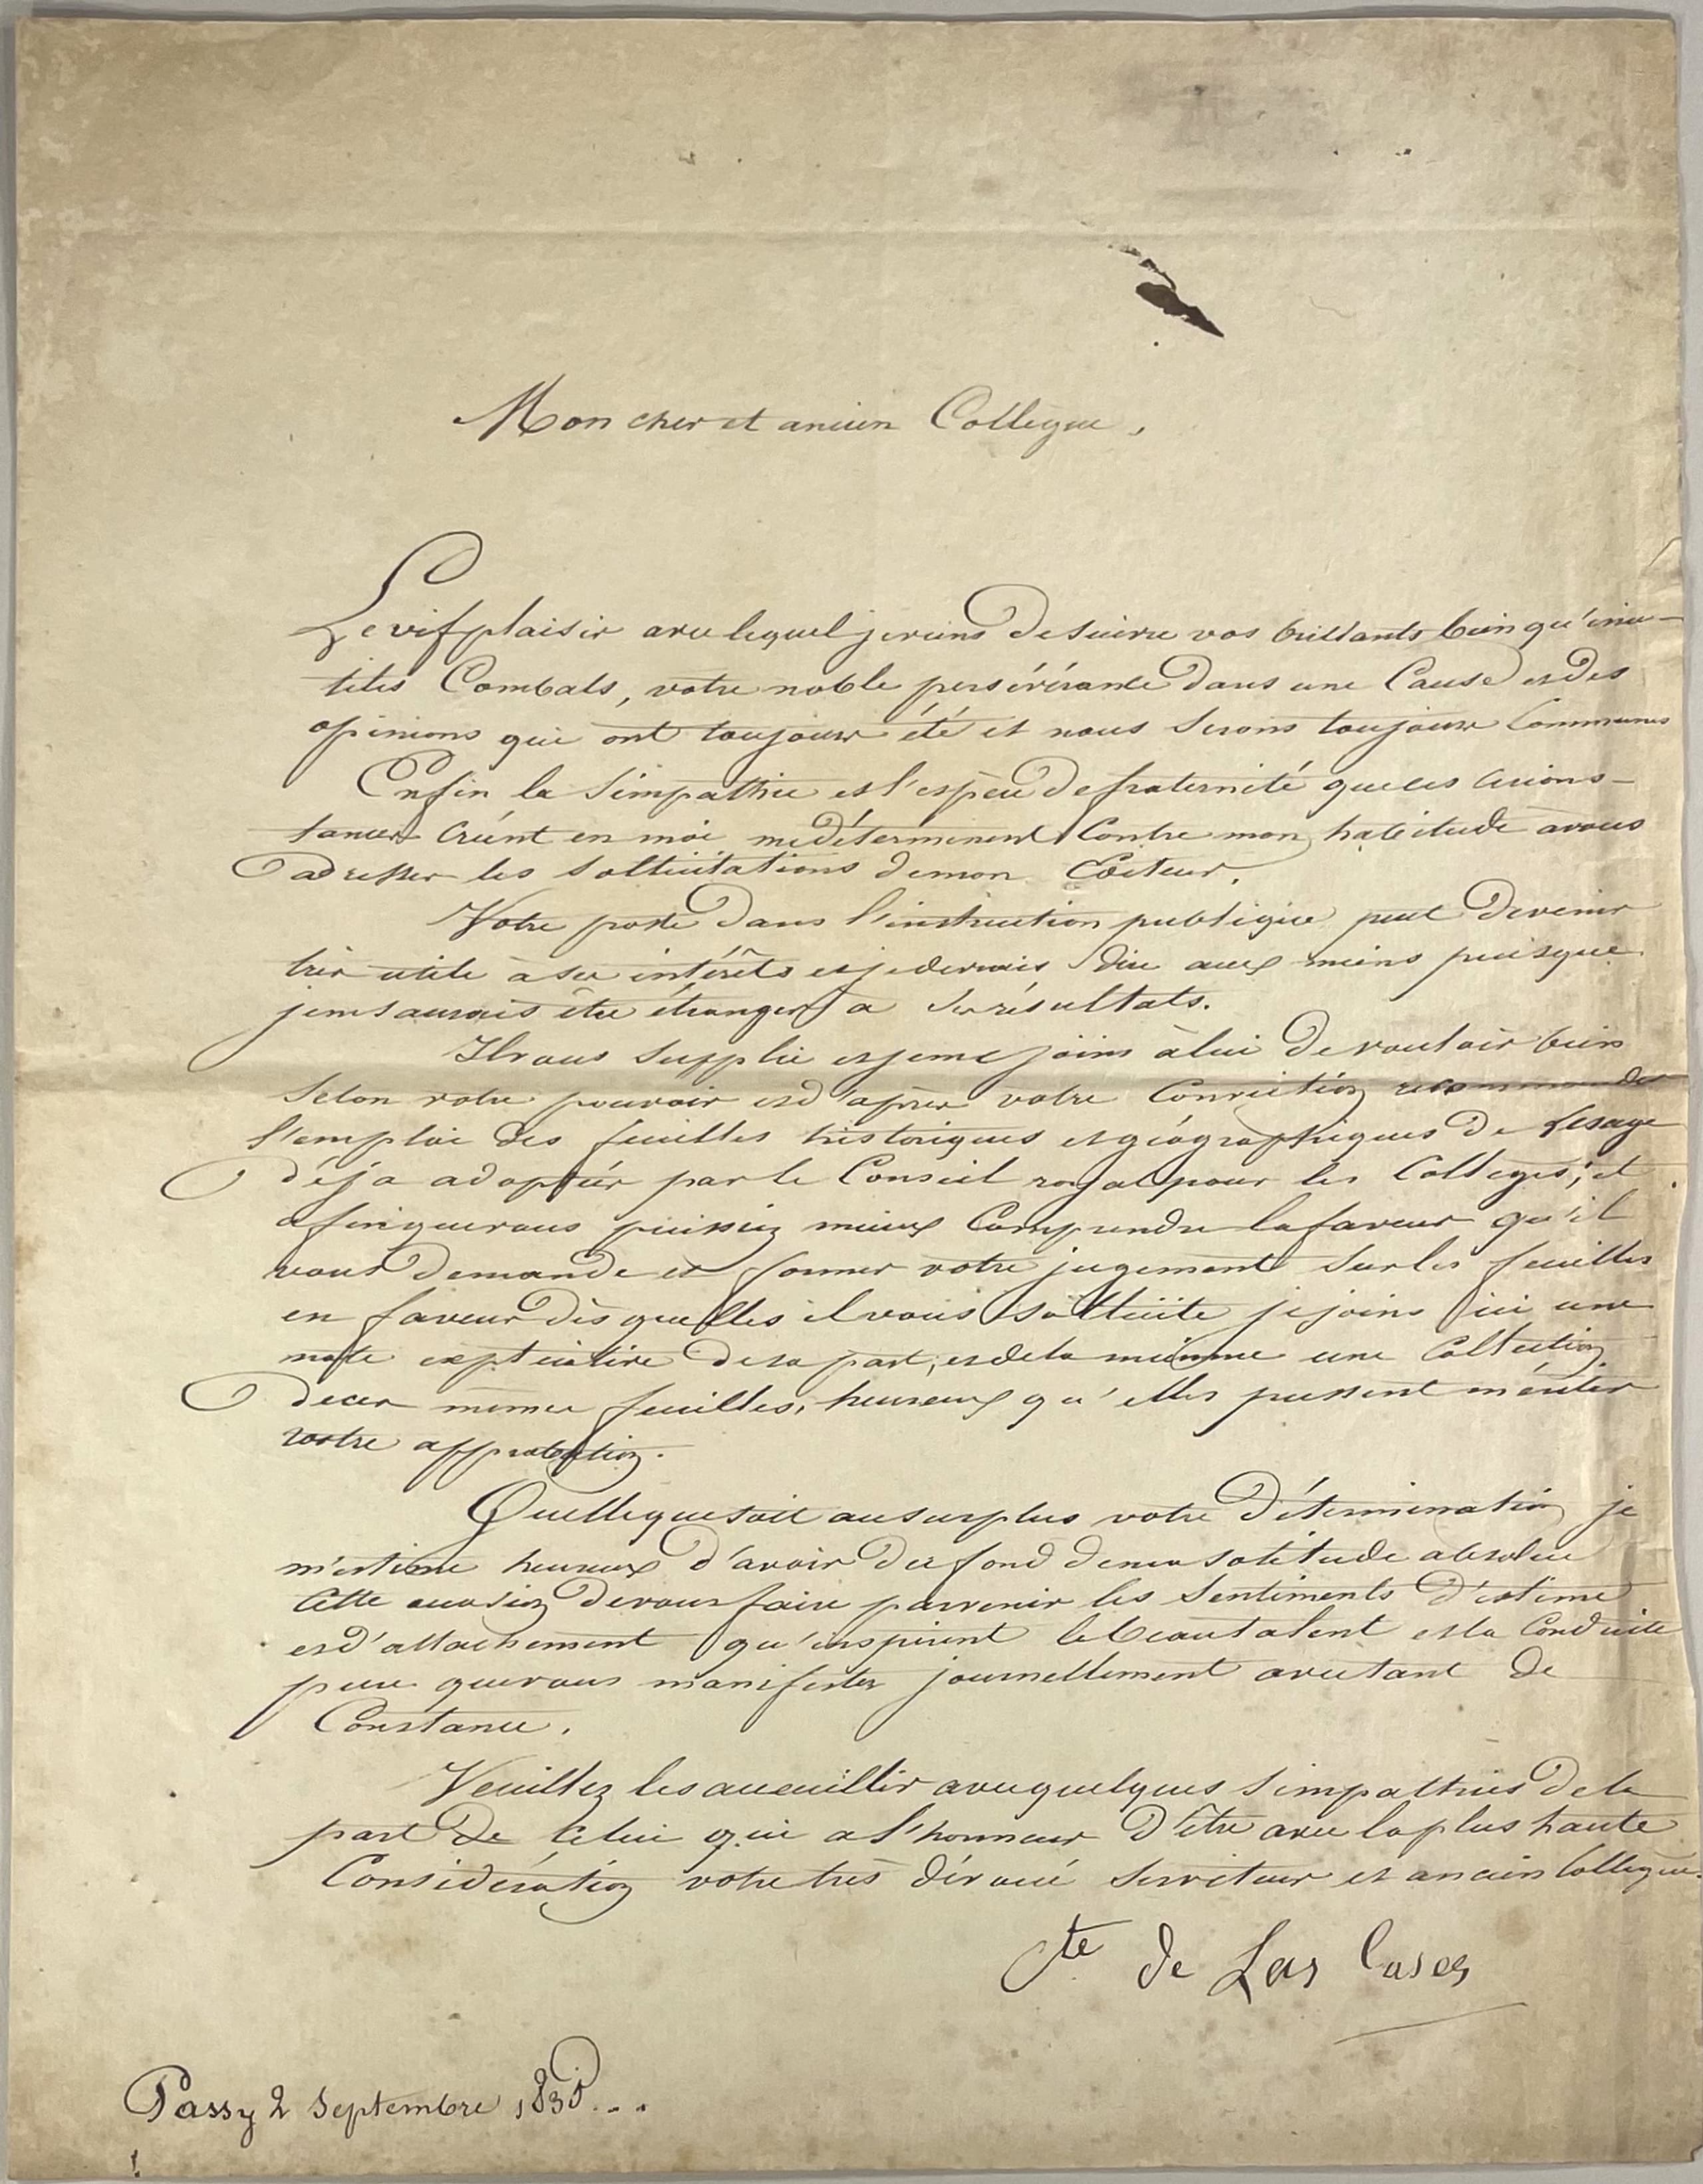 Mon cher et ancien Collègue,
Le vif plaisir avec lequel je viens de suivre vos brillants bien qu'inu-
tiles Combats, votre noble persévérance dans une Cause et des
opinions qui ont toujours été et nous serons toujours Communes
Enfin la Simpathie et l'espèce de fraternité que ces circons-
tances créent en moi me déterminent Contre mon habitude à vous
adresser les sollicitations de mon Editeur.
Votre poste dans l'instruction publique peut devenir
très utile à ses intérêts et je devrais dire aux miens puisque
je ne saurais être étranger à ses résultats.
Il vous supplie et je me joins à lui de vouloir bien
Selon votre pouvoir et d'après votre Conviction recommander
l'emploi des feuilles historiques et géographiques de Lesage
déja adoptées par le Conseil royal pour les Collèges; et
afin que vous puissiez mieux Comprendre la faveur qu'il
vous demande et former votre jugement sur les feuilles
en faveur dèsquelles il vous sollicite je joins ici une
note explicative de sa part, et de la mienne une Collection
de ces mêmes feuilles, heureux qu'elles pussent mériter
votre approbation.
Quelle que soit au surplus votre Détermination je
m'estime heureux d'avoir du fond de ma solitude absolue
Cette occasion de vous faire parvenir les Sentiments d'estime
et d'attachement qu'inspirent le beau talent et la Conduite
pure que vous manifestez journellement avec tant de
Constance.
Veuillez les accueillir avec quelques Simpathies de la
part de Celui qui a l'honneur d'être avec la plus haute
Considération votre très dévoué Serviteur et ancien Collègue.
Cte de Las Cases
Passy 2 Septembre